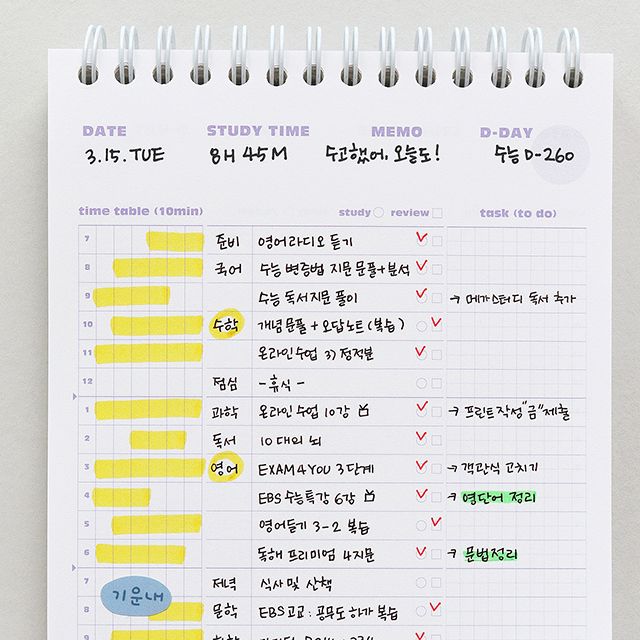 DATE STUDY TIME MEMO D-DAY
3.15. TUE 8H 45M 수고했어, 오늘도! 수능 D-260
time table (10min) study review task (to do)
7 준비 영어라디오 듣기
8 국어 수능 변증법 지문 문풀+분석
9 수능 독서지문 풀이 → 메가스터디 독서 추가
10 수학 개념문풀 + 오답노트 (복습)
11 온라인수업 3) 정적분
12 점심 - 휴식 -
1 과학 온라인수업 10강 → 프린트작성 "금" 제출
2 독서 10대의 뇌
3 영어 EXAM4YOU 3단계 → 객관식 고치기
4 EBS 수능특강 6강 → 영단어 정리
5 영어듣기 3-2 복습
6 독해 프리미엄 4지문 → 문법정리
7 저녁 식사 및 산책
기운내
8 문학 EBS고교: 공무도하가 복습
9